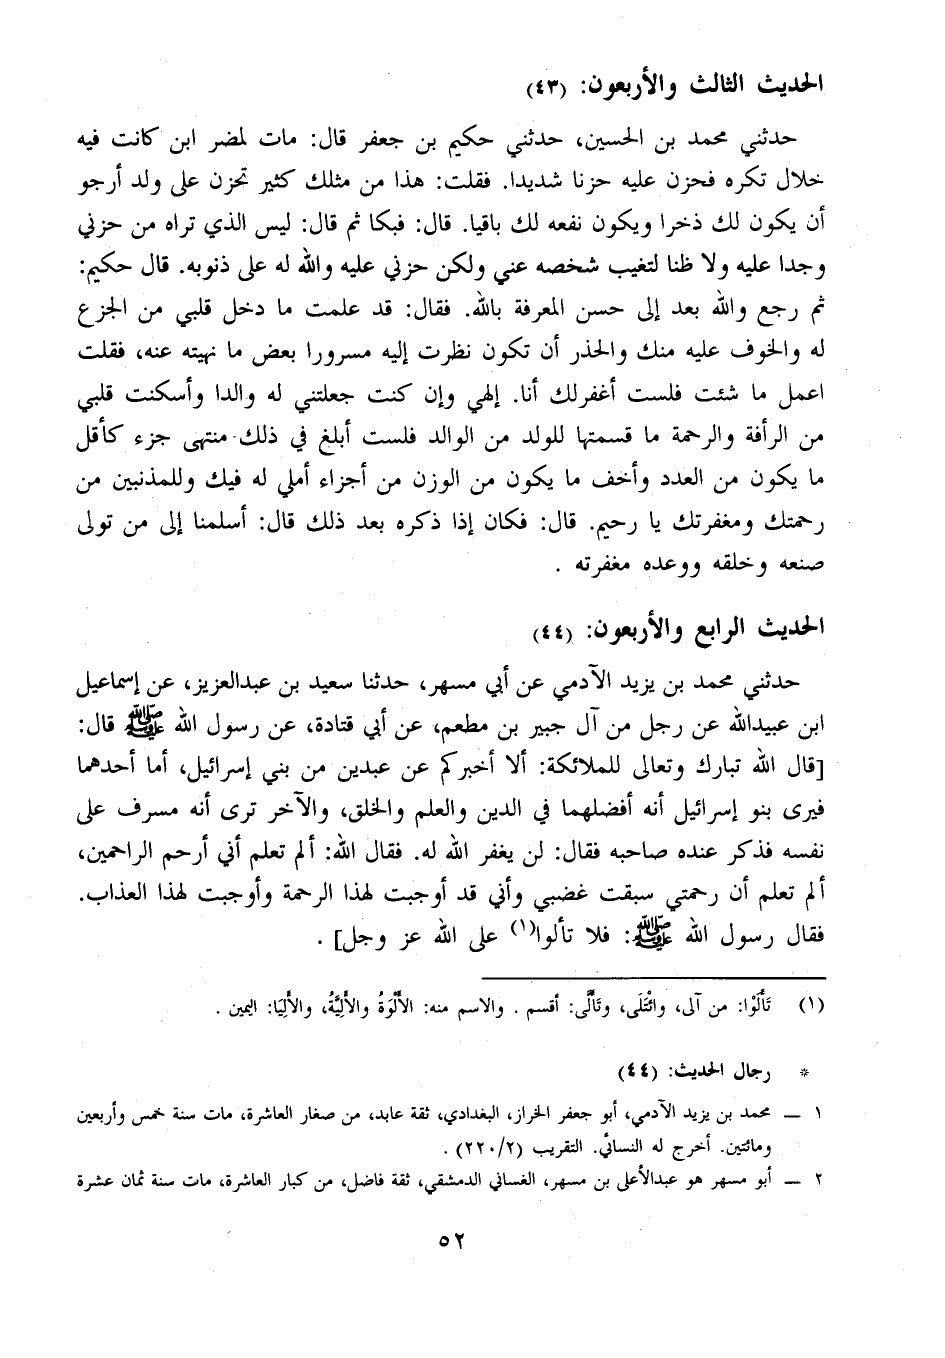 الحديث الثالث والأربعون: (٤٣)
حدثني محمد بن الحسين، حدثني حكيم بن جعفر قال: مات لمضر ابن كانت فيه
خلال تكره فحزن عليه حزنا شديدا. فقلت: هذا من مثلك كثير تحزن على ولد أرجو
أن يكون لك ذخرا ويكون نفعه لك باقيا. قال: فبكا ثم قال: ليس الذي تراه من حزني
وجدا عليه ولا ظنا لتغيب شخصه عني ولكن حزني عليه والله له على ذنوبه. قال حكيم:
ثم رجع والله بعد إلى حسن المعرفة بالله. فقال: قد علمت ما دخل قلبي من الجزع
له والخوف عليه منك والحذر أن تكون نظرت إليه مسرورا بعض ما نهيته عنه، فقلت
اعمل ما شئت فلست أغفرلك أنا. إلهي وإن كنت جعلتني له والدا وأسكنت قلبي
من الرأفة والرحمة ما قسمتها للولد من الوالد فلست أبلغ في ذلك منتهى جزء كأقل
ما يكون من العدد وأخف ما يكون من الوزن من أجزاء أملي له فيك وللمذنبين من
رحمتك ومغفرتك يا رحيم. قال: فكان إذا ذكره بعد ذلك قال: أسلمنا إلى من تولى
صنعه وخلقه ووعده مغفرته .
الحديث الرابع والأربعون: (٤٤)
حدثني محمد بن يزيد الآدمي عن أبي مسهر، حدثنا سعيد بن عبدالعزيز، عن إسماعيل
ابن عبيدالله عن رجل من آل جبير بن مطعم، عن أبي قتادة، عن رسول الله ﷺ قال:
[قال الله تبارك وتعالى للملائكة: ألا أخبركم عن عبدين من بني إسرائيل، أما أحدهما
فيرى بنو إسرائيل أنه أفضلهما في الدين والعلم والخلق، والآخر ترى أنه مسرف على
نفسه فذكر عنده صاحبه فقال: لن يغفر الله له. فقال الله: ألم تعلم أني أرحم الراحمين،
ألم تعلم أن رحمتي سبقت غضبي وأني قد أوجبت لهذا الرحمة وأوجبت لهذا العذاب.
فقال رسول الله ﷺ: فلا تألوا(١) على الله عز وجل] .
(١) تَأَلَّوْا: من آلى، وائْتَلَى، وتَأَلَّى: أقسم . والاسم منه: الأَلْوَةُ والأَلِيَّةُ، والأَلِيَا: اليمين .
* رجال الحديث: (٤٤)
١ ــ محمد بن يزيد الآدمي، أبو جعفر الخراز، البغدادي، ثقة عابد، من صغار العاشرة، مات سنة خمس وأربعين
ومائتين. أخرج له النسائي. التقريب (٢٢٠/٢) .
٢ ــ أبو مسهر هو عبدالأعلى بن مسهر، الغساني الدمشقي، ثقة فاضل، من كبار العاشرة، مات سنة ثمان عشرة
٥٢